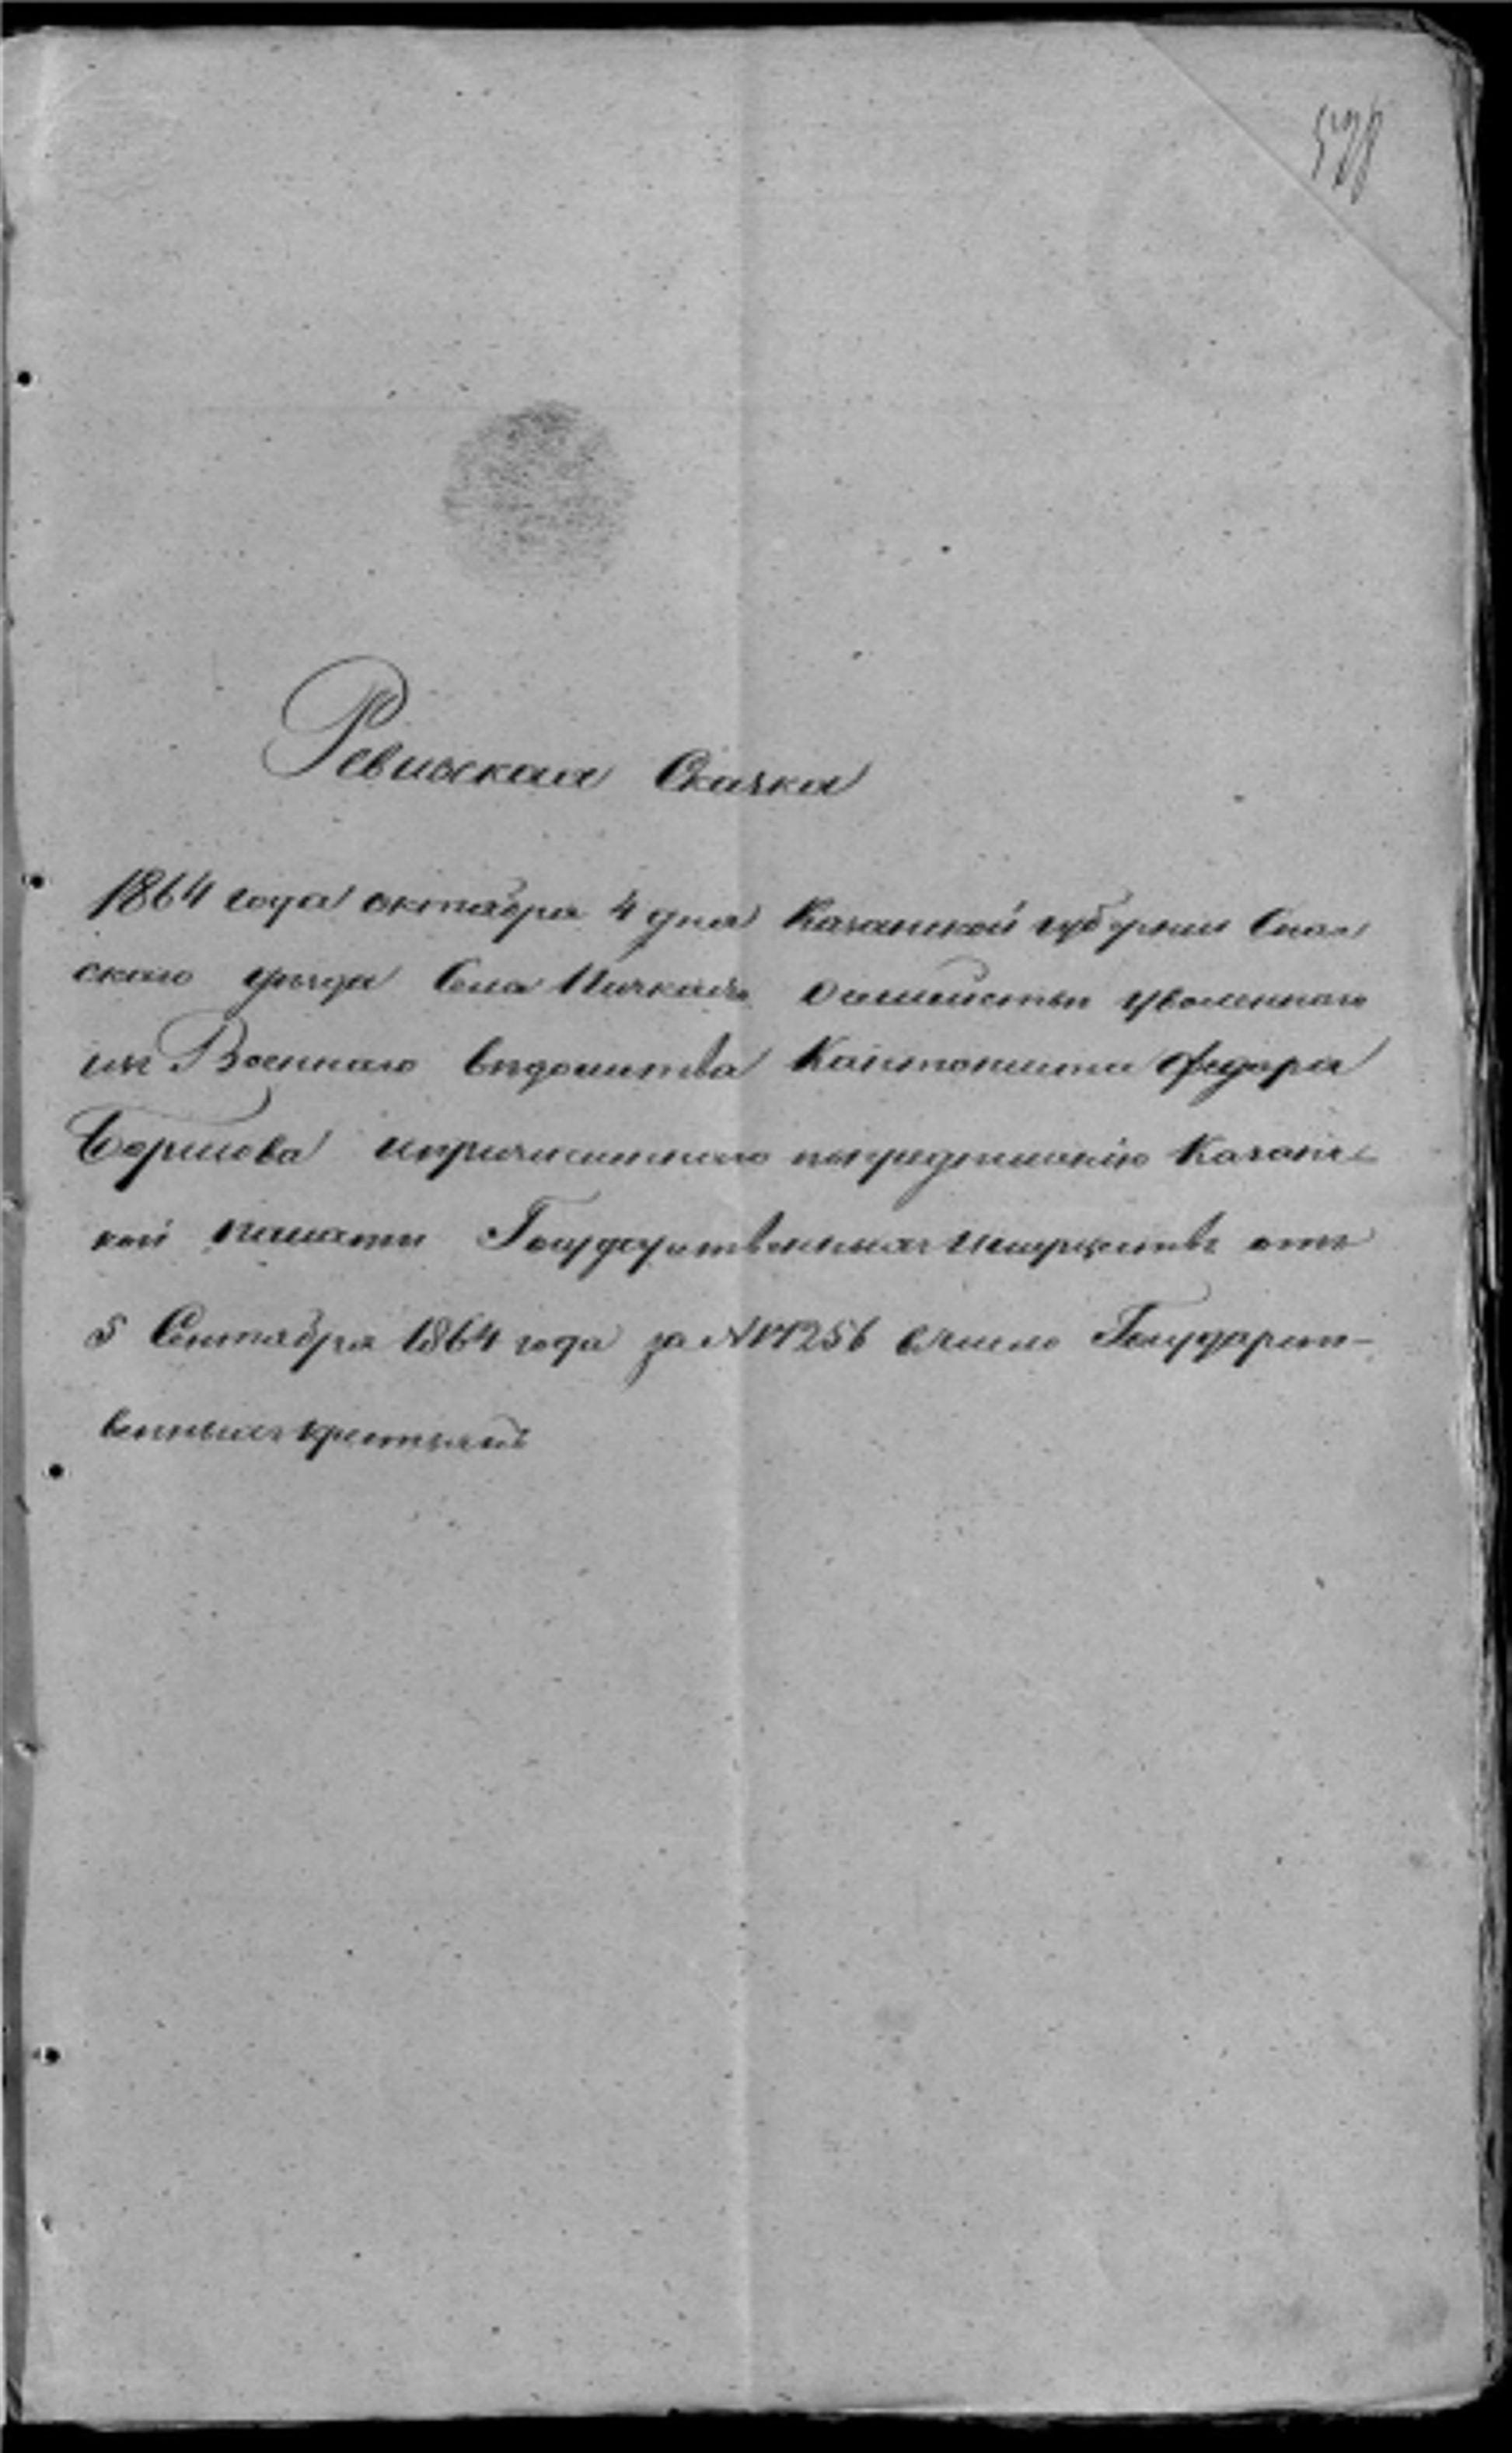 Ревизская Сказка
1864 года октября 4 дня Казанской губернии Спас
скаго уезда Села о семействе уволеннаго
изъ Военнаго ведомства Кантониста Федора
Борисова и причисленнаго по предписанію Казанс
кой палаты Государственныхъ Имуществъ отъ
5 Сентября 1864 года за № 17256 в число Государст-
венныхъ крестьянъ